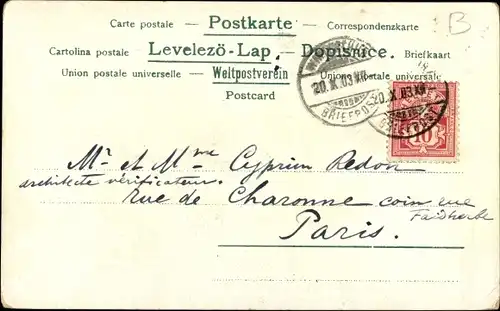 Carte postale – Postkarte – Correspondenzkarte
B
Cartolina postale Levelező-Lap. – Dopisnice. Briefkaart
Union postale universelle – Weltpostverein Unione postale universale
Postcard
20.X.03.XII
BRIEFPOST
20.X.03.XII
10
Mr et Mme Cyprien Redon
architecte vérificateur.
rue de Charonne coin rue
Faidherbe
Paris.